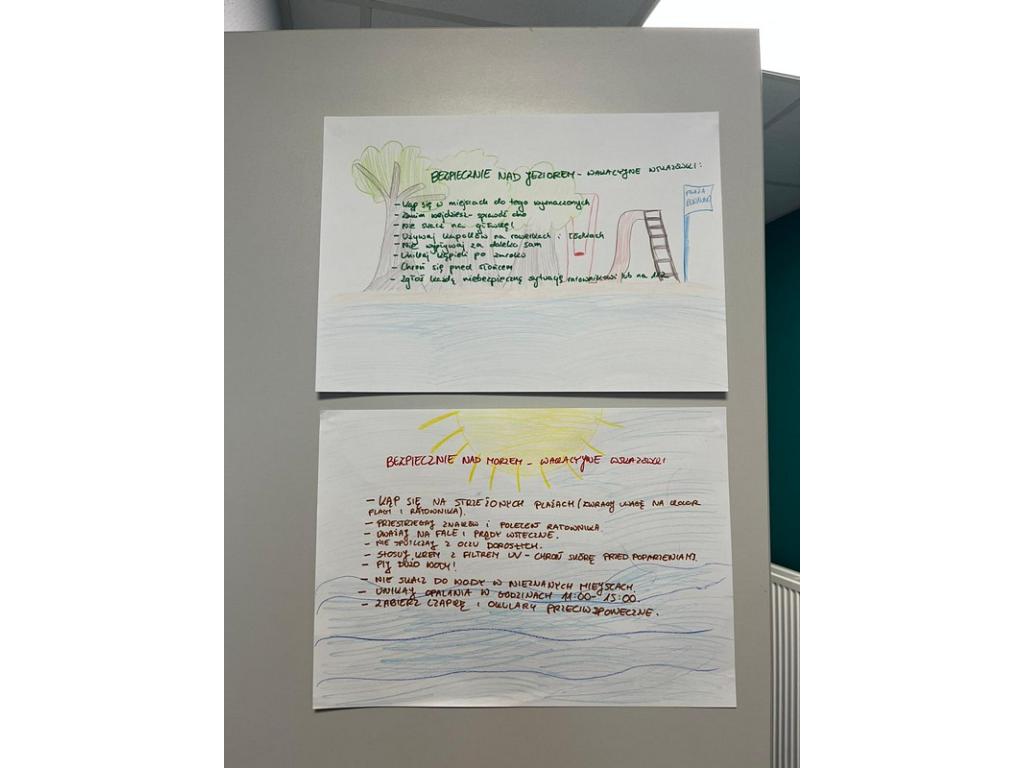 BEZPIECZNIE NAD JEZIOREM - WAKACYJNE WSKAZÓWKI:
- Kąp się w miejscach do tego wyznaczonych
- Zanim wejdziesz - sprawdź dno
- Nie skacz na główkę!
- Używaj kapoków na rowerkach i łódkach
- Nie wypływaj za daleko sam
- Unikaj kąpieli po zmroku
- Chroń się przed słońcem
- Zgłoś każdą niebezpieczną sytuację ratownikowi lub na 112
PLAŻA
BEZPIECZNIE NAD MORZEM - WAKACYJNE WSKAZÓWKI
- KĄP SIĘ NA STRZEŻONYCH PLAŻACH (ZWRACAJ UWAGĘ NA KOLOR
FLAGI I RATOWNIKA).
- PRZESTRZEGAJ ZNAKÓW I POLECEŃ RATOWNIKA.
- UWAŻAJ NA FALE I PRĄDY WSTECZNE.
- NIE SPUSZCZAJ Z OCZU DOROSŁYCH.
- STOSUJ KREM Z FILTREM UV - CHROŃ SKÓRĘ PRZED POPARZENIAMI.
- PIJ DUŻO WODY!
- NIE SKACZ DO WODY W NIEZNANYCH MIEJSCACH.
- UNIKAJ OPALANIA W GODZINACH 11:00 - 15:00.
- ZABIERZ CZAPKĘ I OKULARY PRZECIWSŁONECZNE.